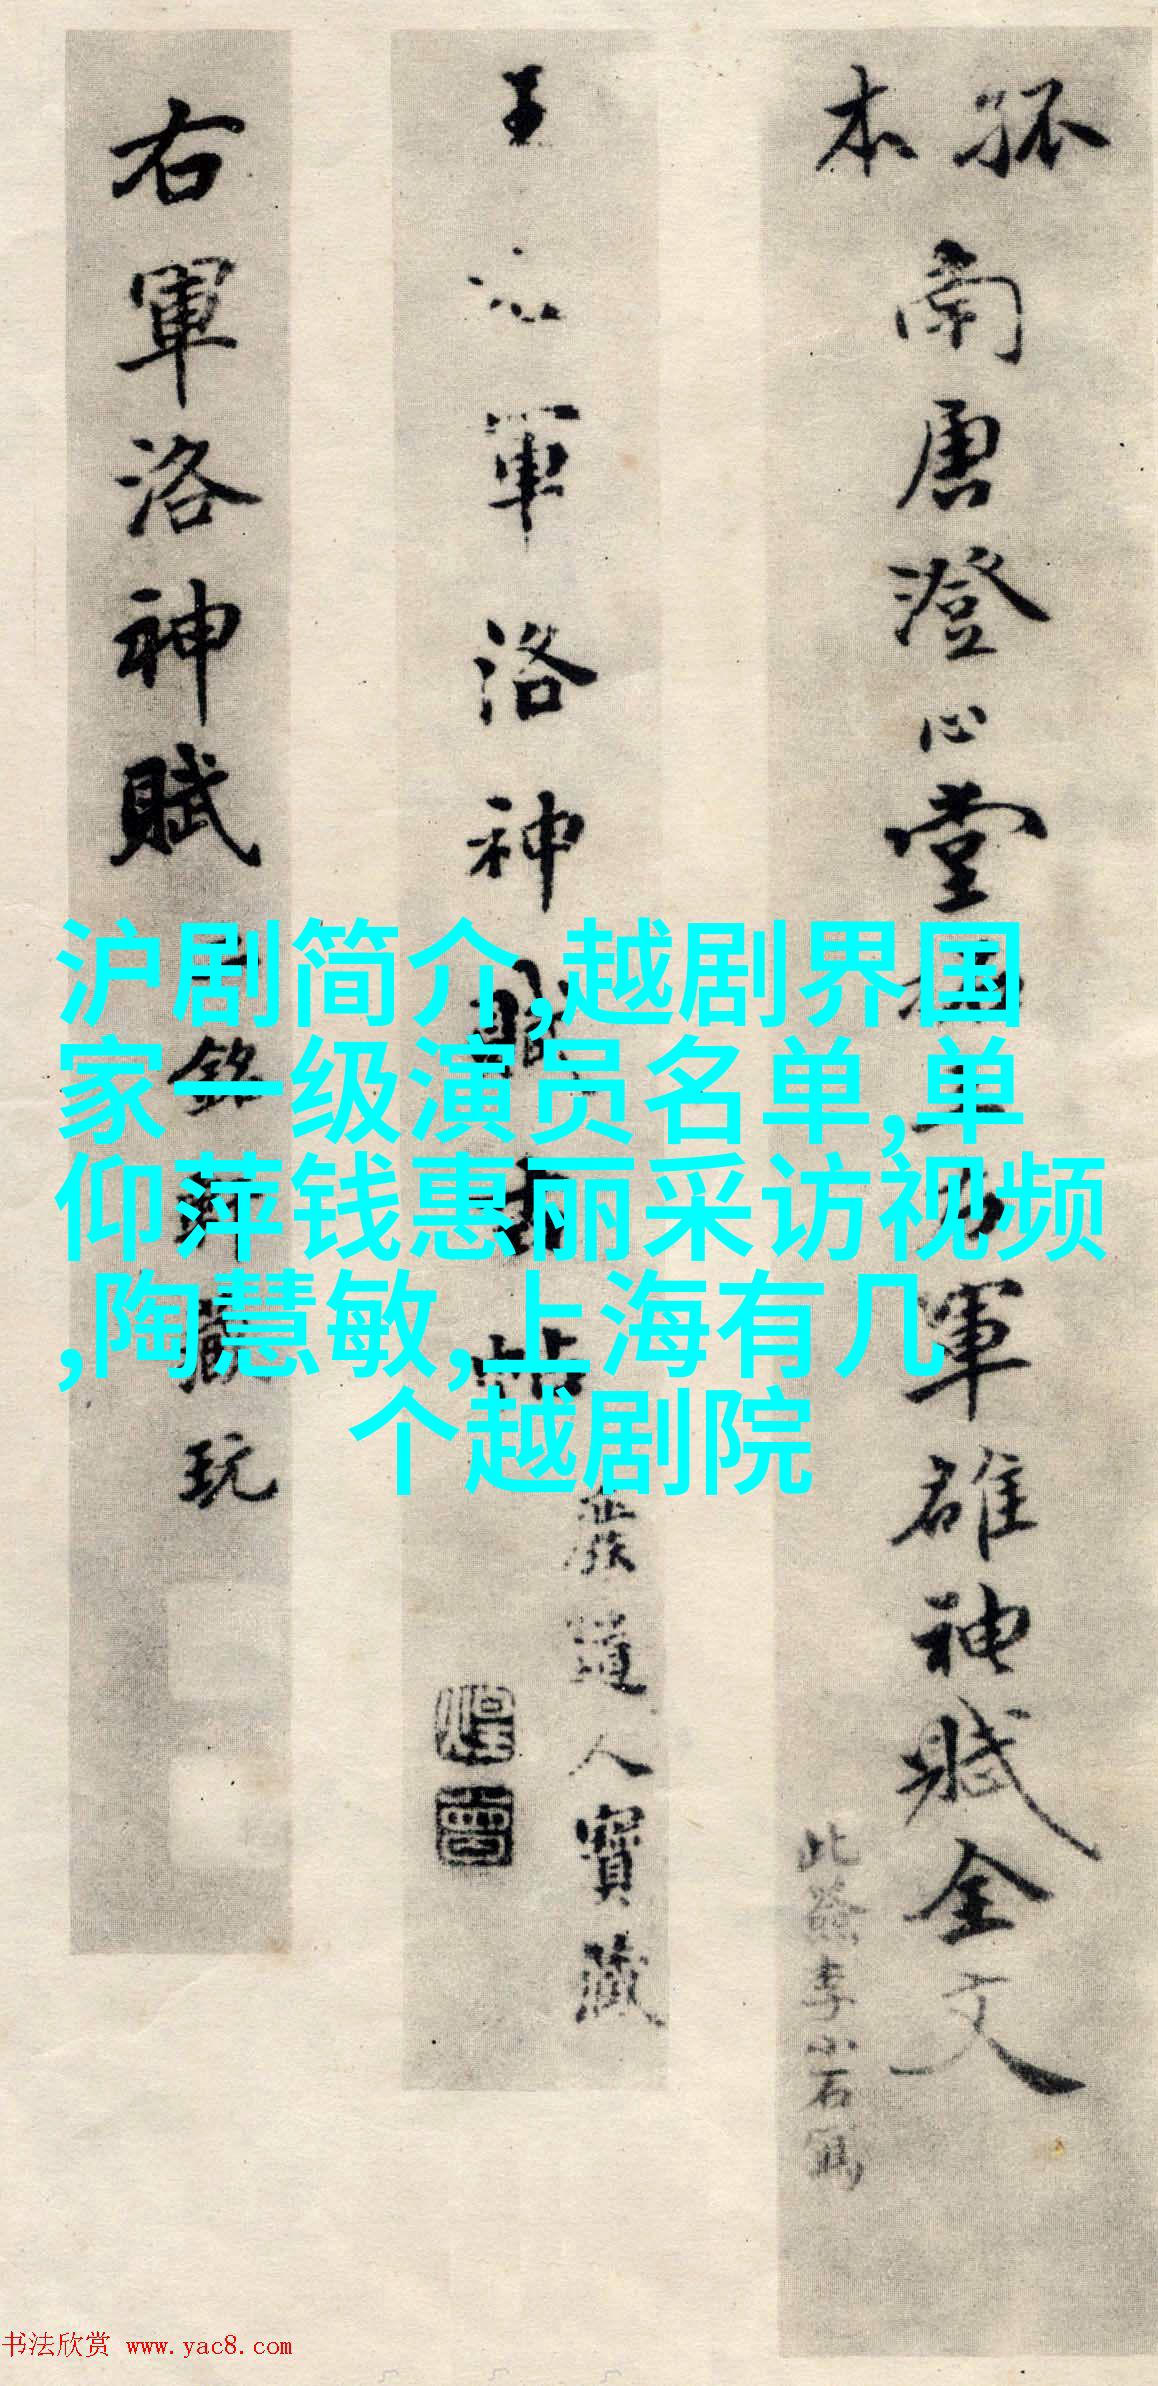 孤本
南唐澄心堂
軍雒神賦全文
此簽李小石寫
王
軍洛神
人寶藏
右軍洛神賦
銘
玩
沪剧简介,越剧界国
家一级演员名单,单
仰萍钱惠丽采访视频
,陶慧敏,上海有几
个越剧院
书法欣赏 www.yac8.com